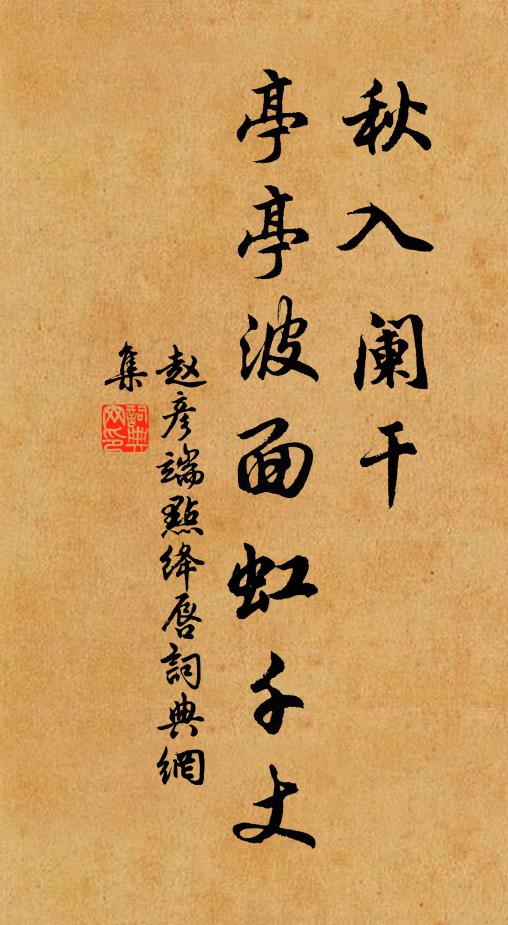 秋入阑干
亭亭波面虹千丈
赵彦端點绛唇詞典網
集
詞典
网印